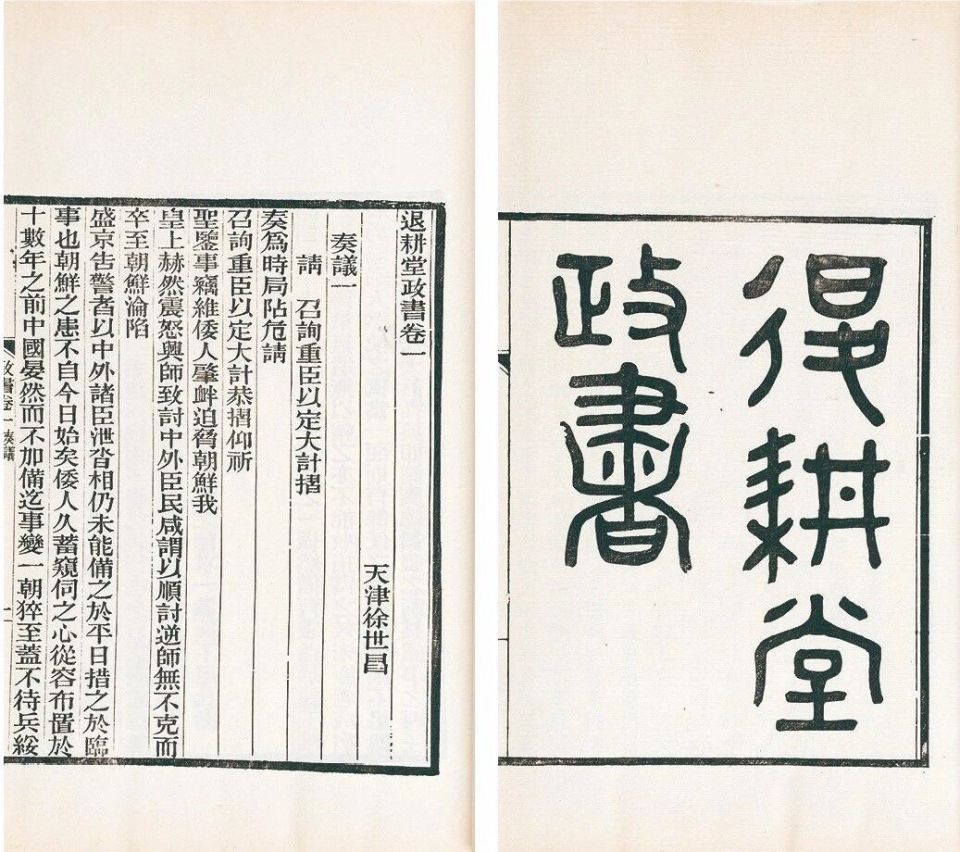 退耕堂
政書
退耕堂政書卷一
天津徐世昌
奏議一
請 召詢重臣以定大計摺
奏為時局阽危請
召詢重臣以定大計恭摺仰祈
聖鑒事竊維倭人肇衅迫脅朝鮮我
皇上赫然震怒興師致討中外臣民咸謂以順討逆師無不克而
卒至朝鮮淪陷
盛京告警者以中外諸臣泄沓相仍未能備之於平日措之於臨
事也朝鮮之患不自今日始矣倭人久蓄窺伺之心從容布置於
十數年之前中國晏然而不加備迄事變一朝猝至蓋不待兵綏
政書卷一 奏議
一